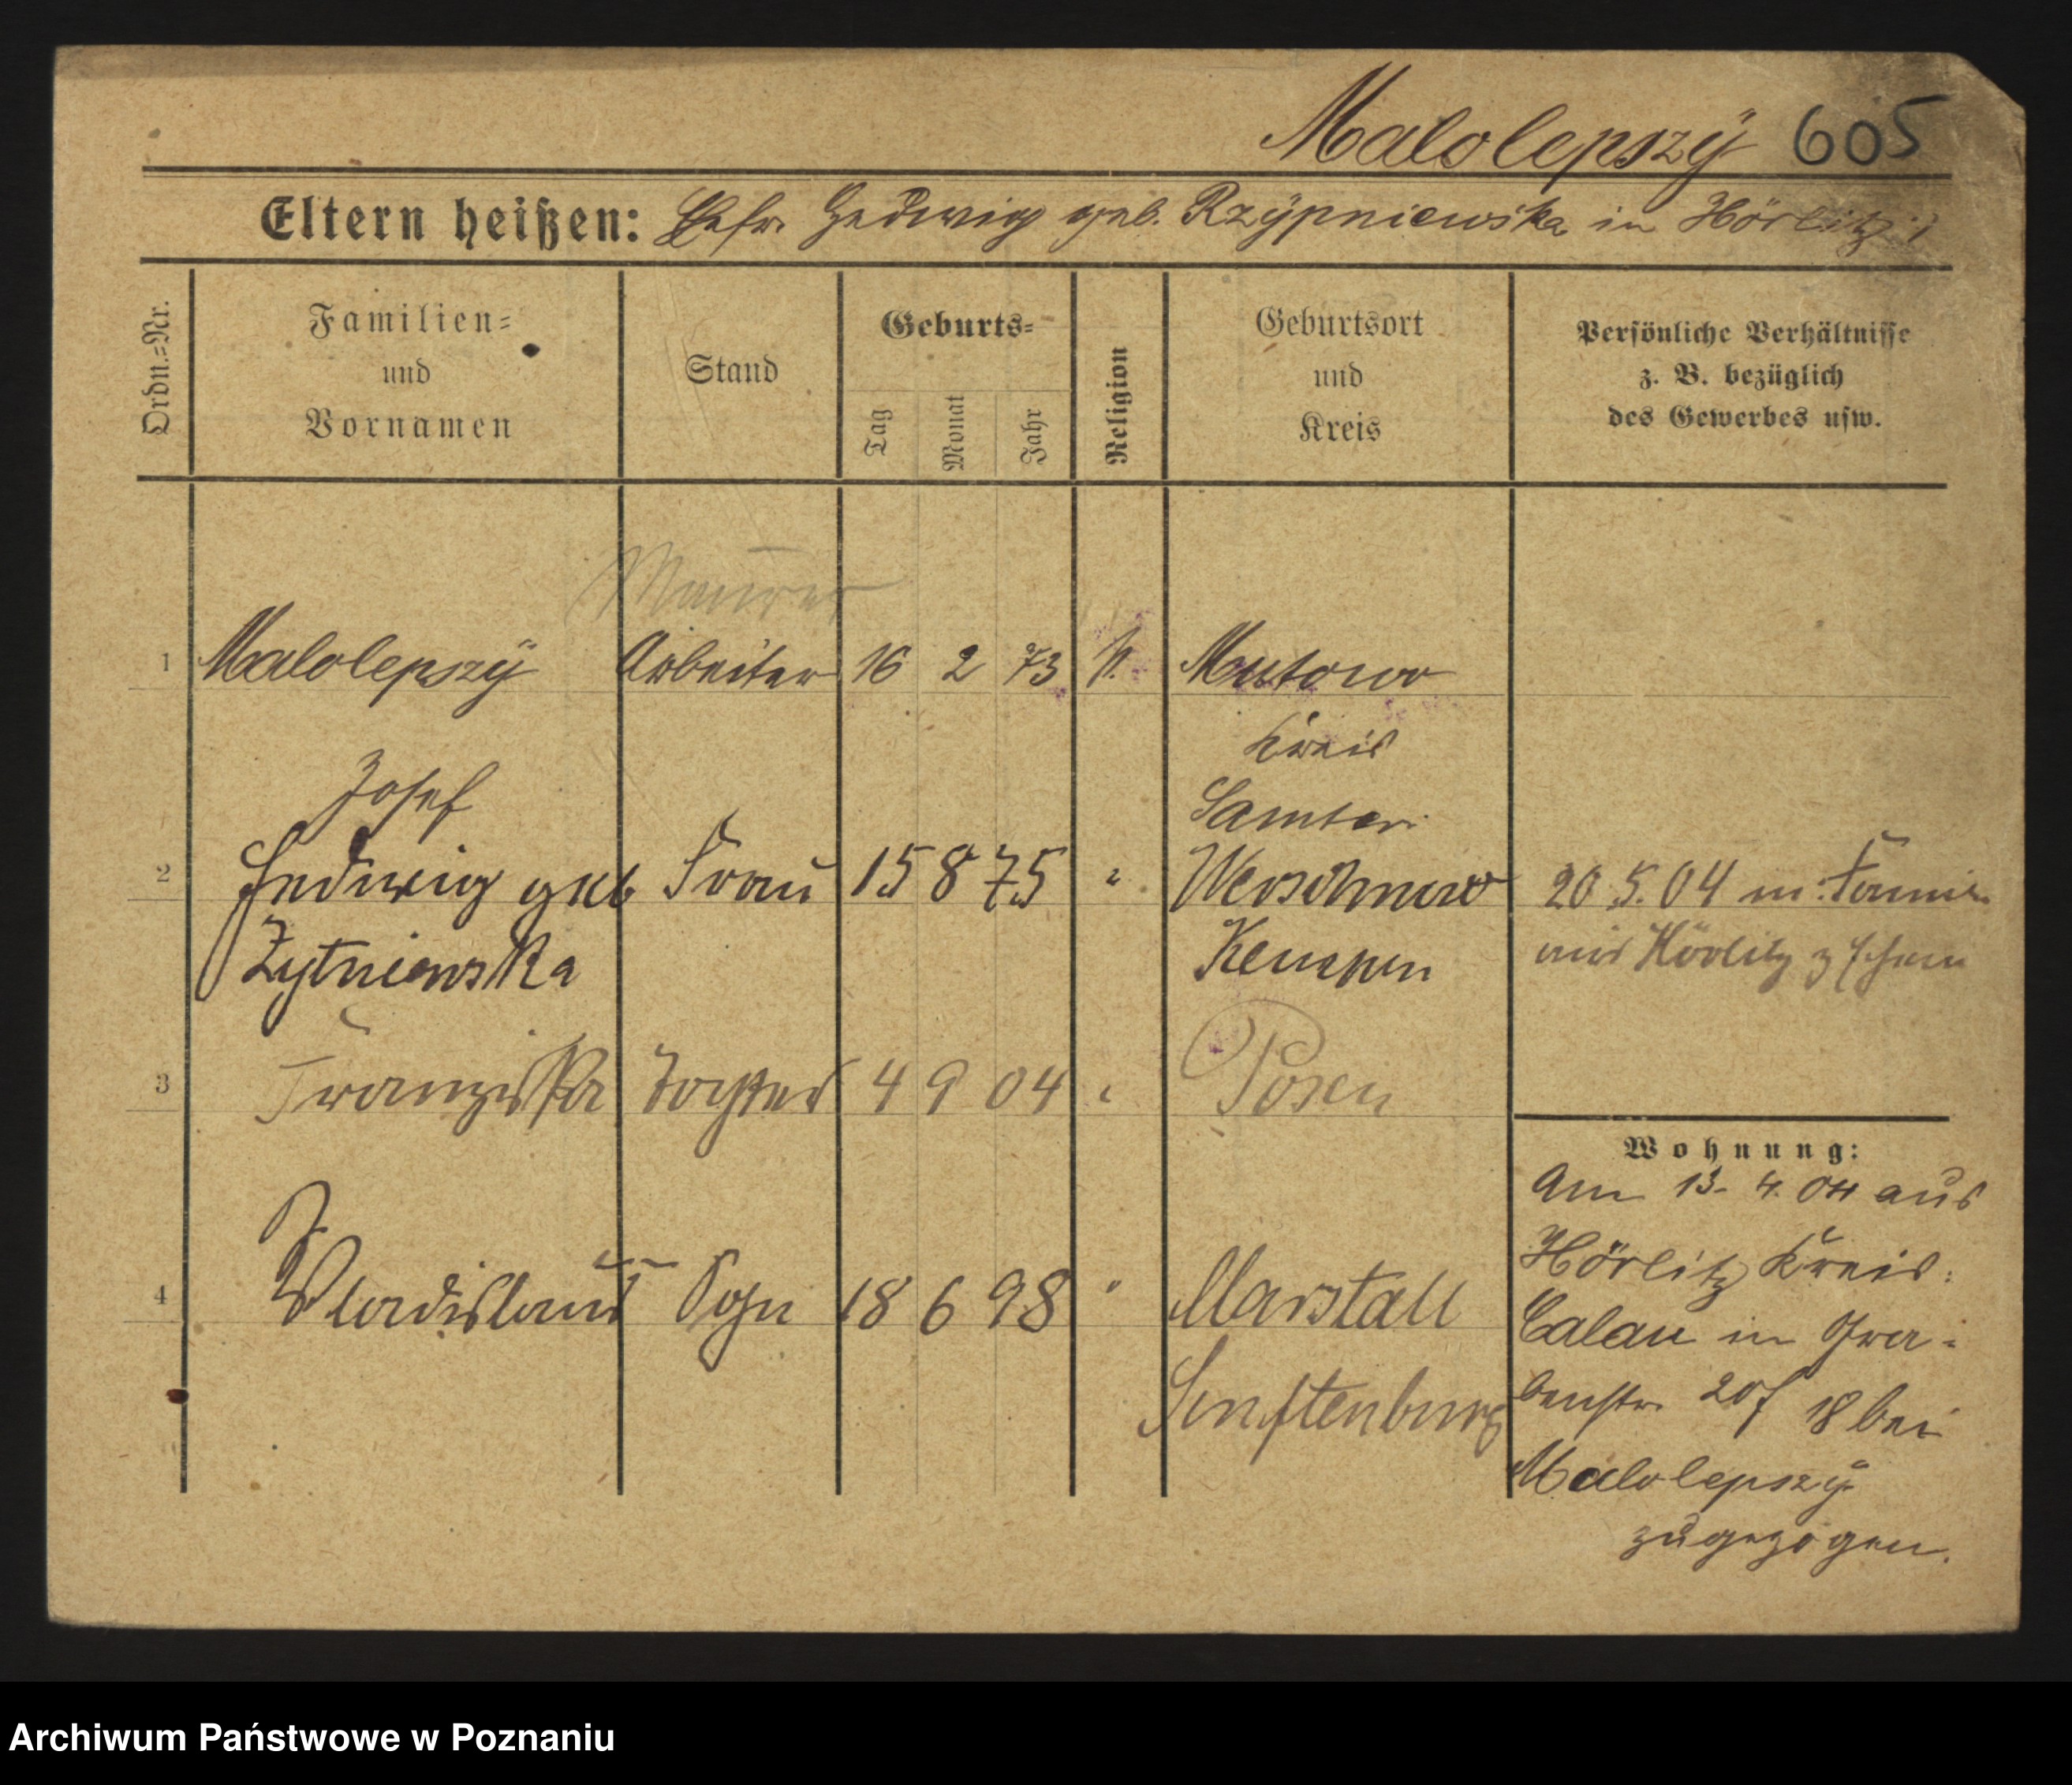 Malolepszy 605
Eltern heißen: Ehefr. Hedwig geb. Rzypniewska in Hörlitz
Ordn.=Nr.
Familien=
und
Vornamen
Stand
Geburts=
Tag
Monat
Jahr
Religion
Geburtsort
und
Kreis
Persönliche Verhältnisse
z. B. bezüglich
des Gewerbes usw.
Maurer
1 Malolepszy Arbeiter 16 2 73 k. Mutowo
Kreis
Josef
Samter
2 Hedwig geb Frau 15 8 75 " Werschnow 20.5.04 m: Famil
Zytniewska Kempen aus Hörlitz
3 Franziska Tochter 4 9 04 " Posen
4 Wladislaus Sohn 18 6 98 " Marstall
Senftenburg
Wohnung:
Am 13. 4. 04 aus
Hörlitz Kreis
Calau in Gra-
benstr. 18 bei
Malolepszy
zugezogen.
Archiwum Państwowe w Poznaniu